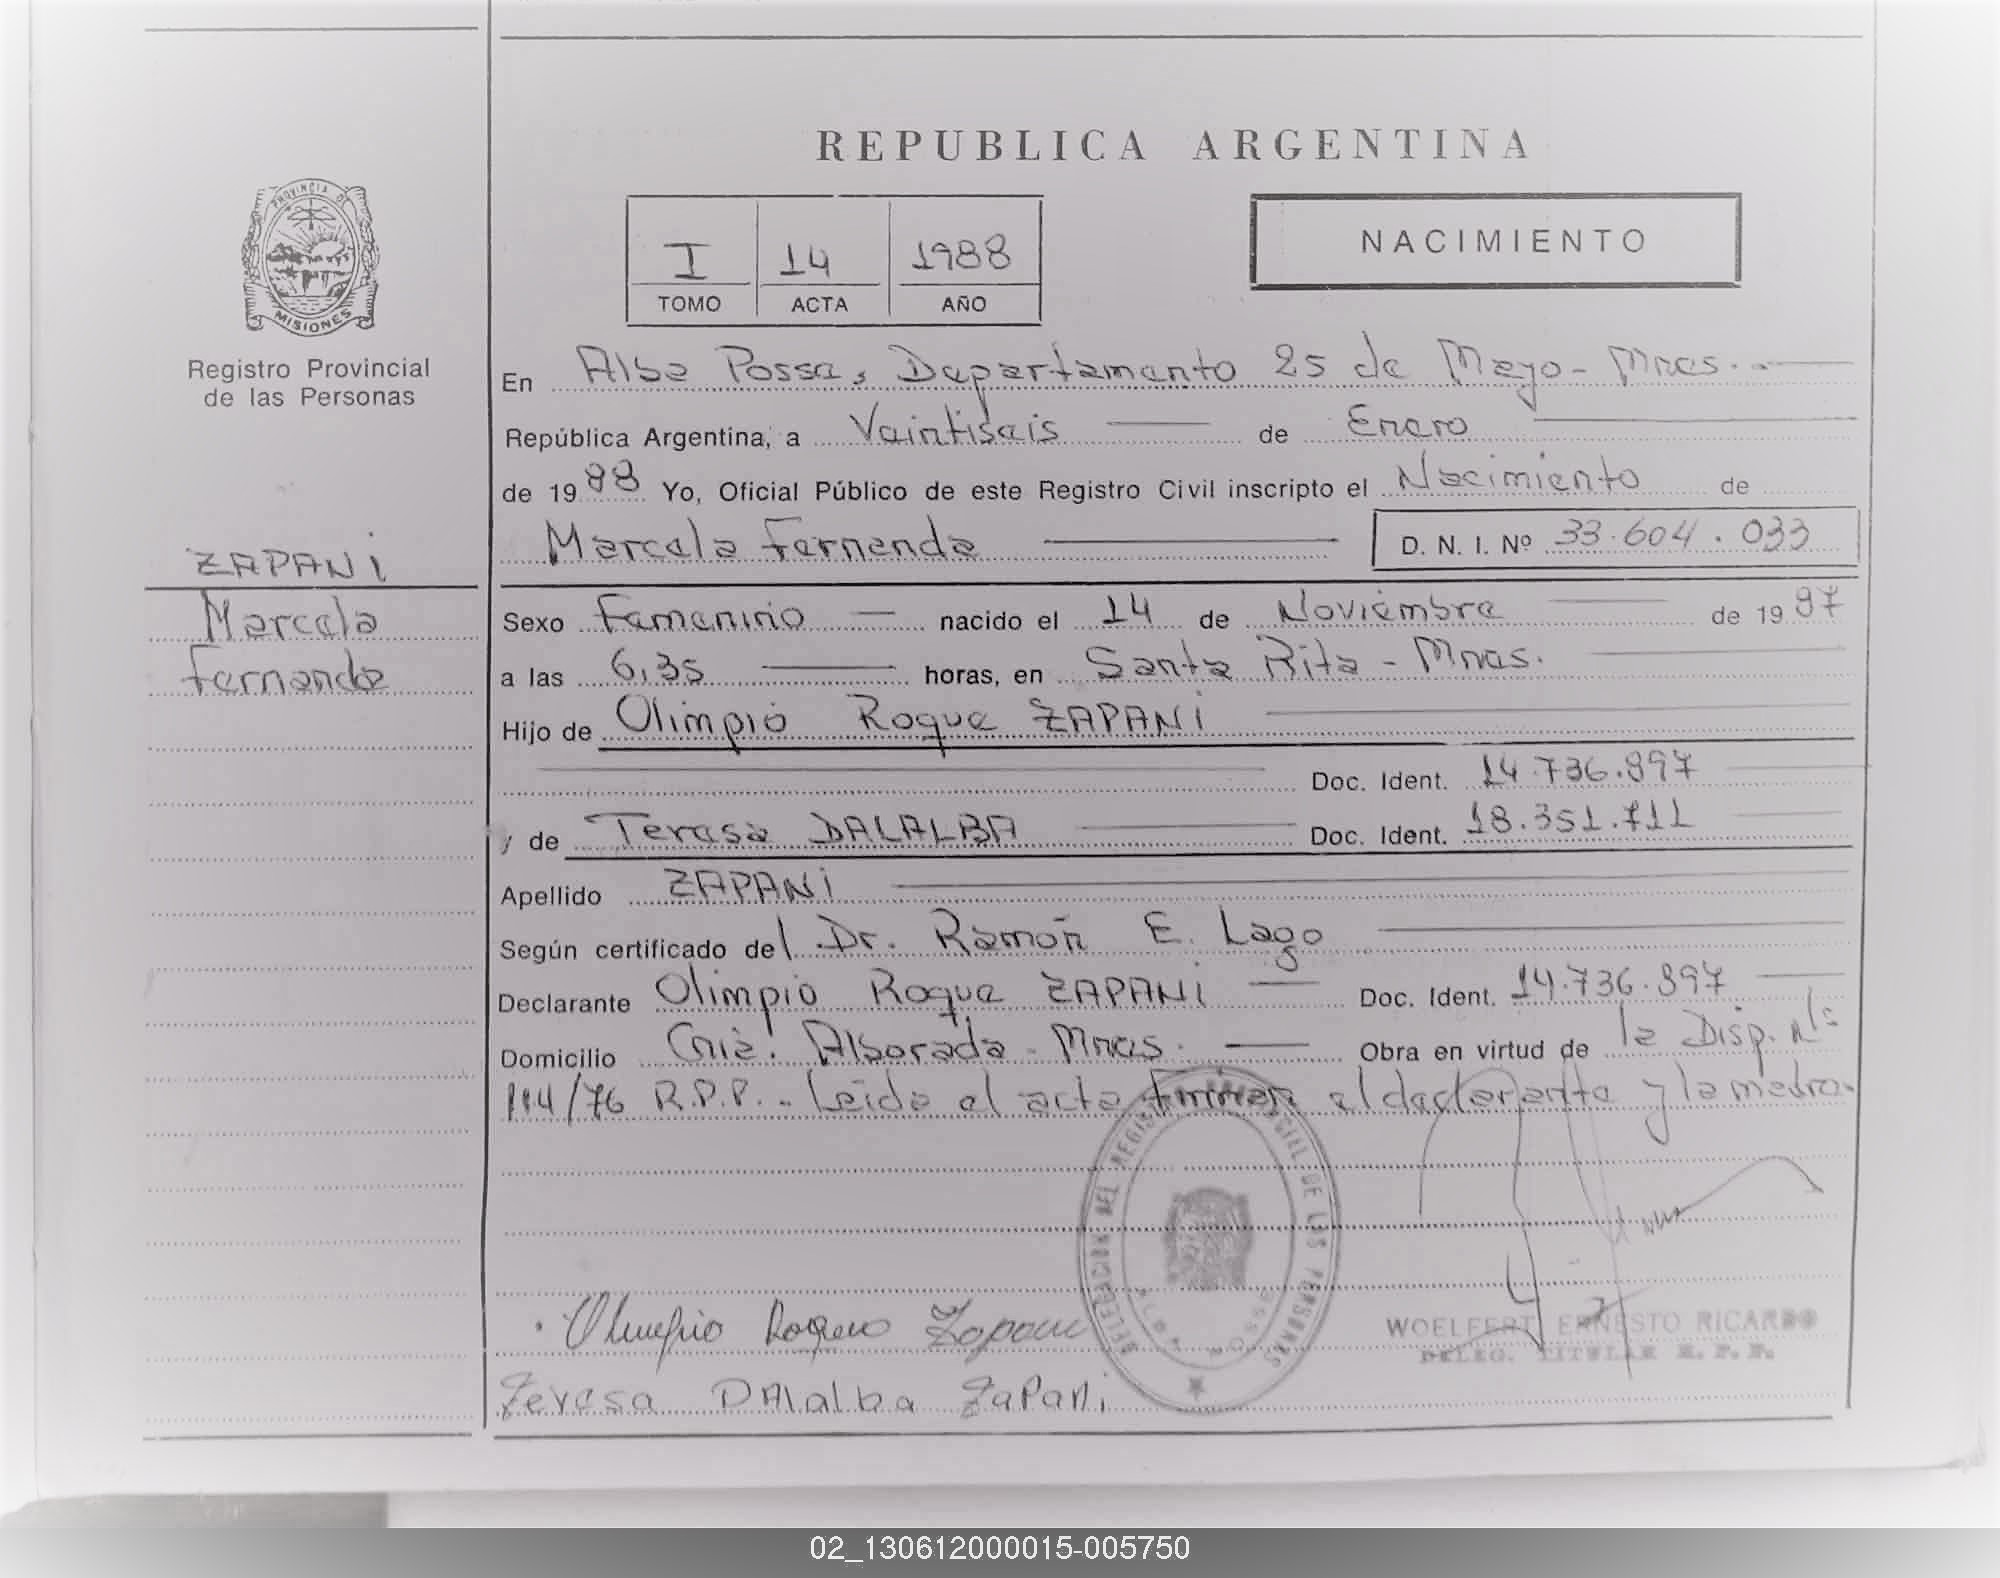 REPUBLICA ARGENTINA
NACIMIENTO
I 14 1988
TOMO ACTA AÑO
PROVINCIA DE
MISIONES
Registro Provincial
de las Personas
ZAPANI
Marcela
Fernanda
En Alba Possa, Departamento 25 de Mayo - Mnes.
República Argentina, a Veintiseis de Enero
de 1988 Yo, Oficial Público de este Registro Civil inscripto el Nacimiento de
Marcela Fernanda D. N. I. Nº 33.604.033
Sexo Femenino nacido el 14 de Noviembre de 1987
a las 6,35 horas, en Santa Rita - Mnes.
Hijo de Olimpio Roque ZAPANI
Doc. Ident. 14.736.897
y de Teresa DALALBA Doc. Ident. 18.351.711
Apellido ZAPANI
Según certificado del Dr. Ramón E. Lago
Declarante Olimpio Roque ZAPANI Doc. Ident. 14.736.897
Domicilio Cnia. Alborada - Mnes. Obra en virtud de la Disp. Nº
114/76 R.P.P. - Leida el acta firman el declarante y la madre.
DELEGACION DEL REGISTRO PROVINCIAL DE LAS PERSONAS
ALBA POSSE
WOELFERT ERNESTO RICARDO
DELEG. TITULAR R. P. P.
Olimpio Roque Zapani
Teresa DAlalba ZaPaNi
02_130612000015-005750